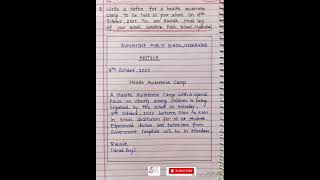 Write a notice for a health awareness
camp to be held in your school on 18th
October, 2025. You are Raunak, Head boy
of your school Sunshine Public School, Hyderabad
SUNSHINE PUBLIC SCHOOL, HYDERABAD
NOTICE
8th October, 2025
Health Awareness Camp
A Health Awareness Camp with a special
focus on obesity among children is being
organised by the school on Saturday,
18th October, 2025 between 9AM to
in School auditorium for all our students
Experienced doctors and technicians from
Government hospitals will be in attendance
Raunak
(Head Boy)
SUBSCRIBE